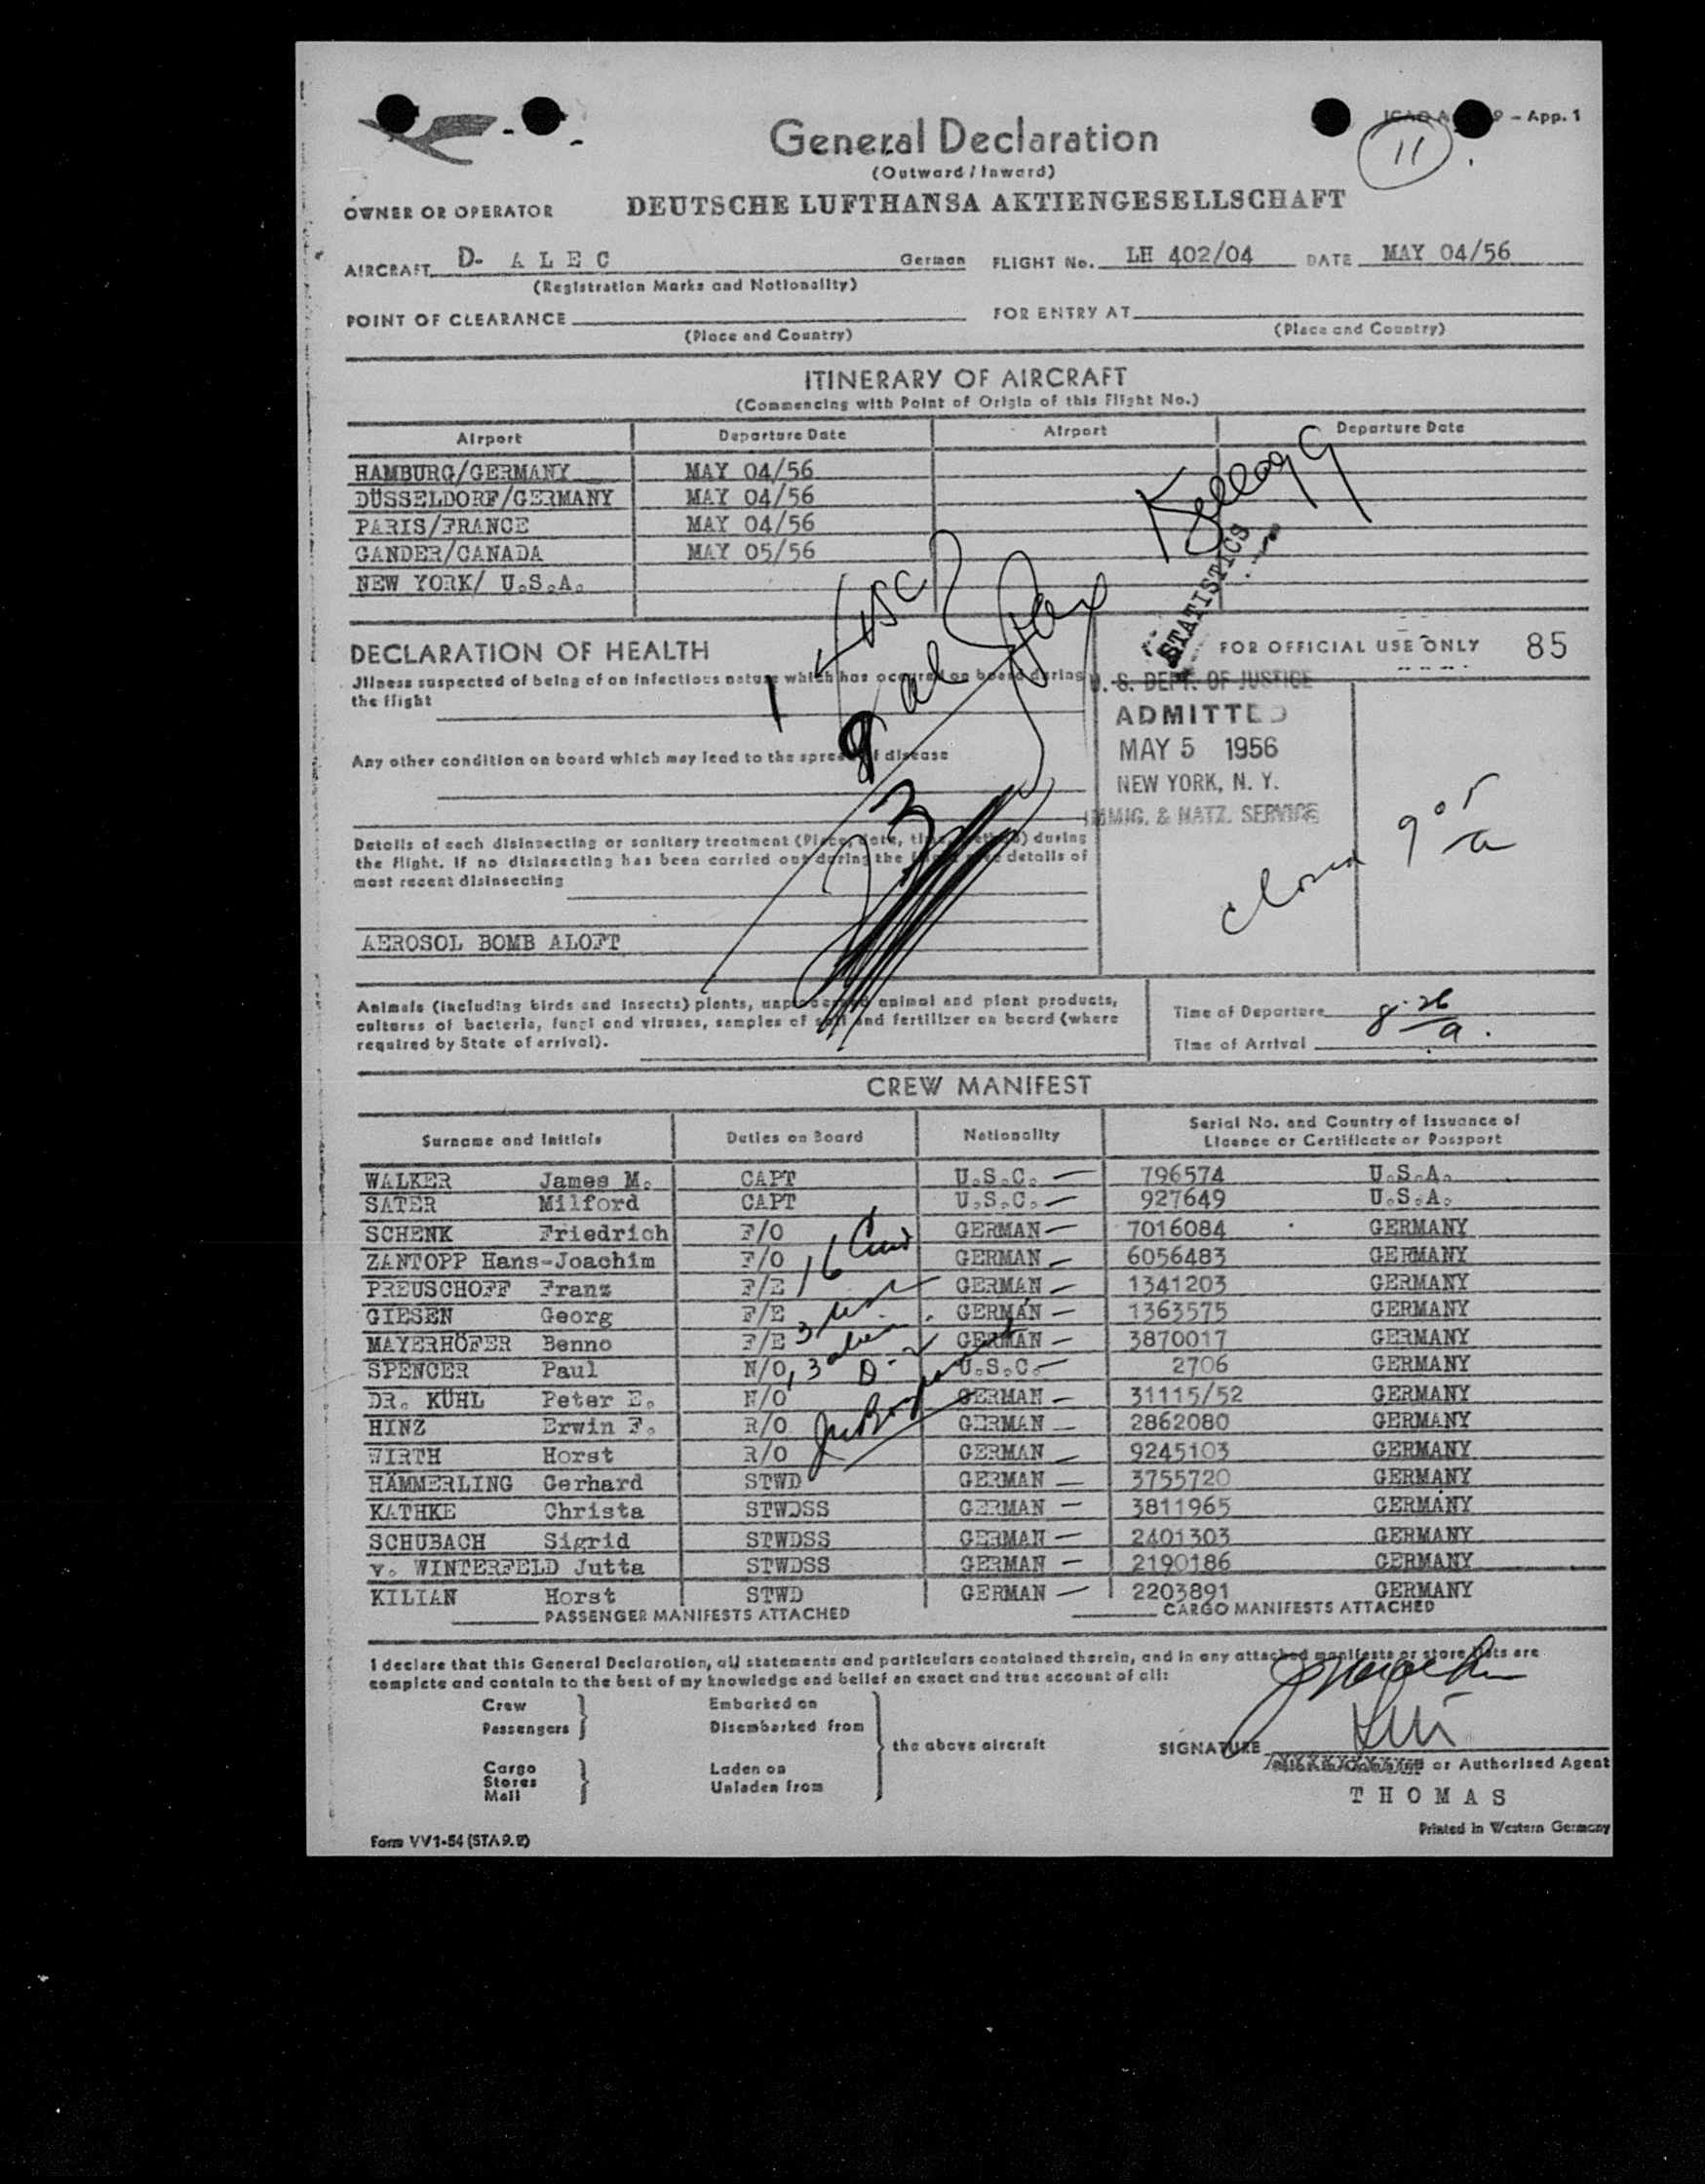 - App. 1
11
General Declaration
(Outward / Inward)
OWNER OR OPERATOR DEUTSCHE LUFTHANSA AKTIENGESELLSCHAFT
AIRCRAFT D- A L E C German FLIGHT No. LH 402/04 DATE MAY 04/56
(Registration Marks and Nationality)
POINT OF CLEARANCE FOR ENTRY AT
(Place and Country) (Place and Country)
ITINERARY OF AIRCRAFT
(Commencing with Point of Origin of this Flight No.)
Airport Departure Date Airport Departure Date
HAMBURG/GERMANY MAY 04/56
DÜSSELDORF/GERMANY MAY 04/56
PARIS/FRANCE MAY 04/56
GANDER/CANADA MAY 05/56
NEW YORK/ U.S.A.
Kellogg
STATISTICS
1 USC
8 al
23
DECLARATION OF HEALTH
FOR OFFICIAL USE ONLY 85
Jllness suspected of being of an infectious nature which has occured on board during
the flight
U. S. DEPT. OF JUSTICE
ADMITTED
MAY 5 1956
NEW YORK, N. Y.
IMMIG. & NATZ. SERVICE
Any other condition on board which may lead to the spread of disease
closed 9 05 a
Details of each disinsecting or sanitary treatment (Place, date, time, method) during
the flight. If no disinsecting has been carried out during the flight give details of
most recent disinsecting
AEROSOL BOMB ALOFT
Animals (including birds and insects) plants, unprocessed animal and plant products,
cultures of bacteria, fungi and viruses, samples of soil and fertilizer on board (where
required by State of arrival).
Time of Departure
8:26 a.
Time of Arrival
CREW MANIFEST
Surname and Initials Duties on Board Nationality Serial No. and Country of Issuance of
Licence or Certificate or Passport
WALKER James M. CAPT U.S.C. 796574 U.S.A.
SATER Milford CAPT U.S.C. 927649 U.S.A.
SCHENK Friedrich F/O GERMAN 7016084 GERMANY
ZANTOPP Hans-Joachim F/O GERMAN 6056483 GERMANY
PREUSCHOFF Franz F/E GERMAN 1341203 GERMANY
GIESEN Georg F/E GERMAN 1363575 GERMANY
MAYERHÖFER Benno F/E GERMAN 3870017 GERMANY
SPENCER Paul N/O U.S.C. 2706 GERMANY
DR. KÜHL Peter E. N/O GERMAN 31115/52 GERMANY
HINZ Erwin F. R/O GERMAN 2862080 GERMANY
WIRTH Horst R/O GERMAN 9245103 GERMANY
HÄMMERLING Gerhard STWD GERMAN 3755720 GERMANY
KATHKE Christa STWDSS GERMAN 3811965 GERMANY
SCHUBACH Sigrid STWDSS GERMAN 2401303 GERMANY
v. WINTERFELD Jutta STWDSS GERMAN 2190186 GERMANY
KILIAN Horst STWD GERMAN 2203891 GERMANY
16 Crew
PASSENGER MANIFESTS ATTACHED CARGO MANIFESTS ATTACHED
I declare that this General Declaration, all statements and particulars contained therein, and in any attached manifests or store lists are
complete and contain to the best of my knowledge and belief an exact and true account of all:
Crew Embarked on
Passengers Disembarked from
the above aircraft
Cargo Laden on
Stores Unladen from
Mail
SIGNATURE
or Authorised Agent
T H O M A S
Printed in Western Germany
Form VV1-54 (STA 9.2)